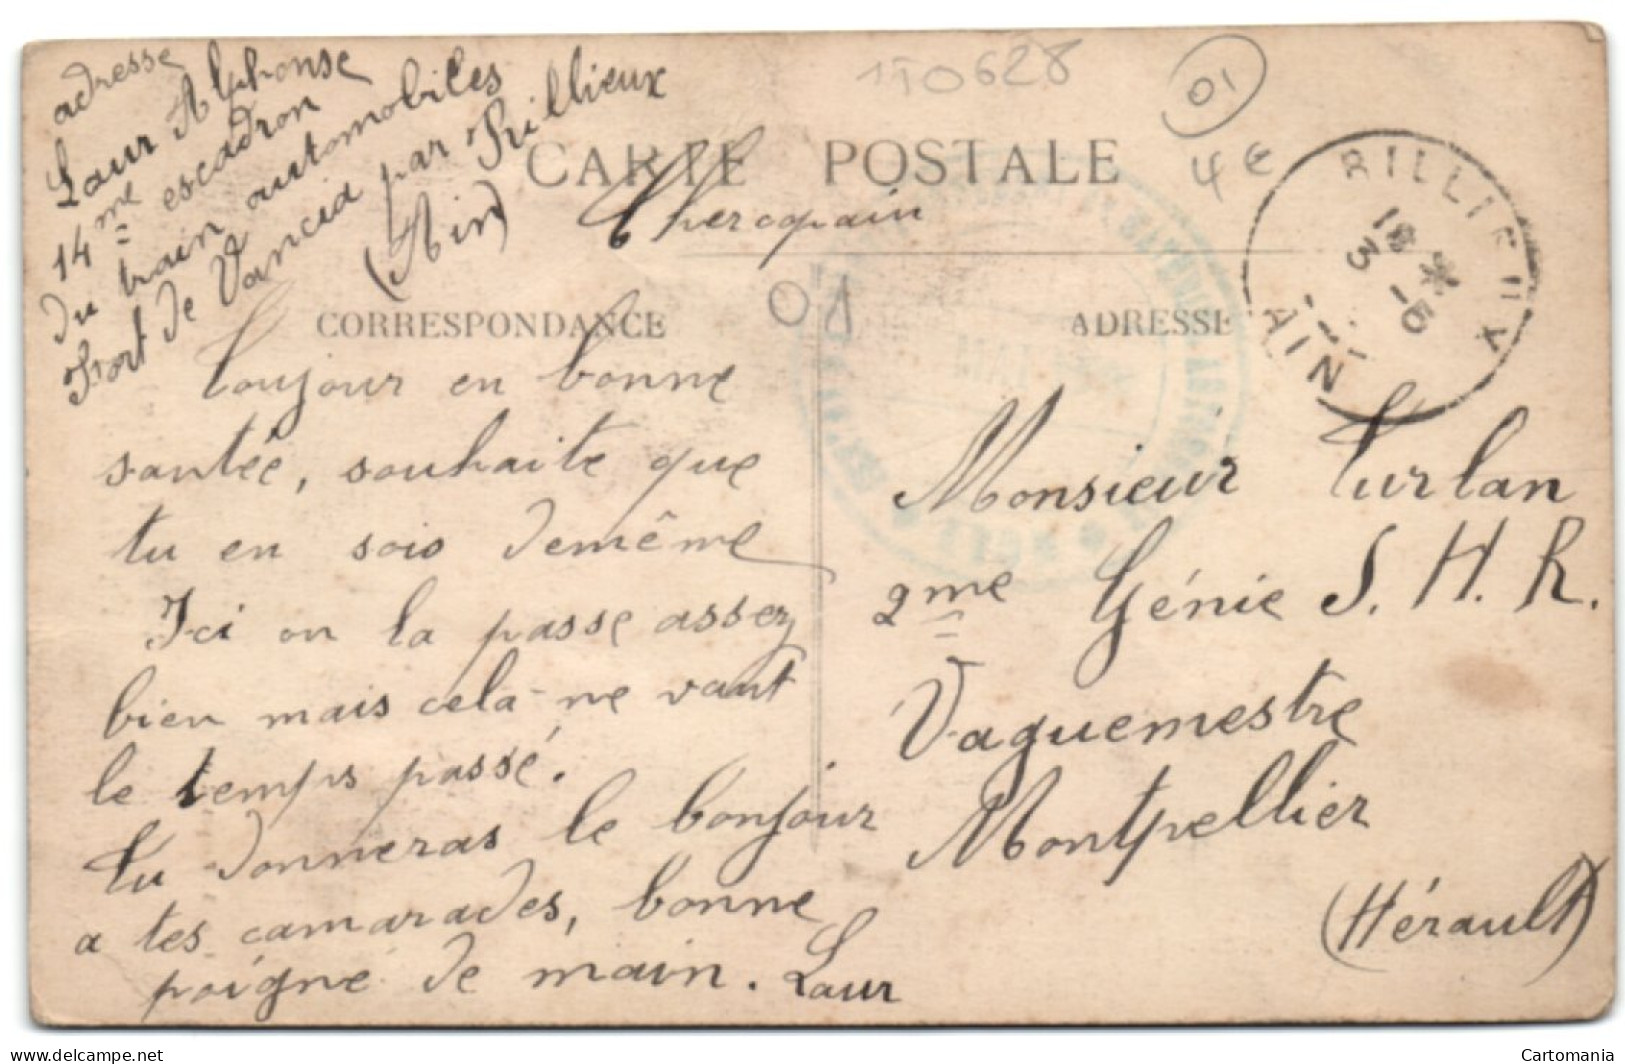 adresse
Laur Alphonse
14me escadron
du train automobiles
Fort de Vancia par Rillieux
(Ain)
110628
01
4€
CARTE POSTALE
Cher copain
RILLIEUX
18 * 3 -5
AIN
CORRESPONDANCE
01
ADRESSE
Toujour en bonne
santée, souhaite que
tu en sois demême
Ici on la passe assez
bien mais cela ne vaut
le temps passé.
Tu donneras le bonjour
a tes camarades, bonne
poigné de main. Laur
Monsieur Turlan
2me Génie S.H.R.
Vaguemestre
Montpellier
(Hérault)
Cartomania
delcampe.net